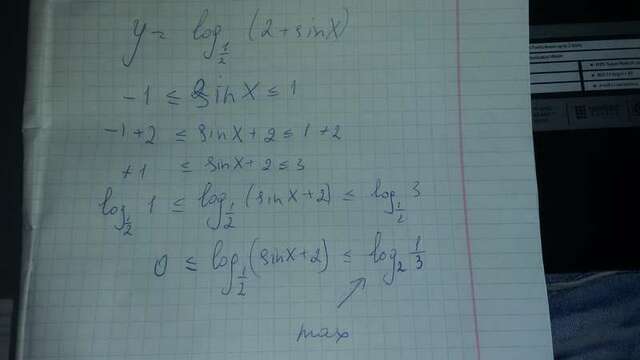 y = log_{1/2} (2+sinx)
-1 ≤ sinx ≤ 1
-1+2 ≤ sinx+2 ≤ 1+2
+1 ≤ sinx+2 ≤ 3
log_{1/2} 1 ≤ log_{1/2} (sinx+2) ≤ log_{1/2} 3
0 ≤ log_{1/2} (sinx+2) ≤ log_2 1/3
max